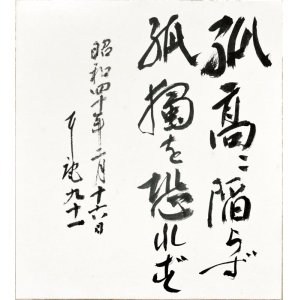 孤高に陥らず
孤獨を恐れず
昭和四十年二月十六日
九十一